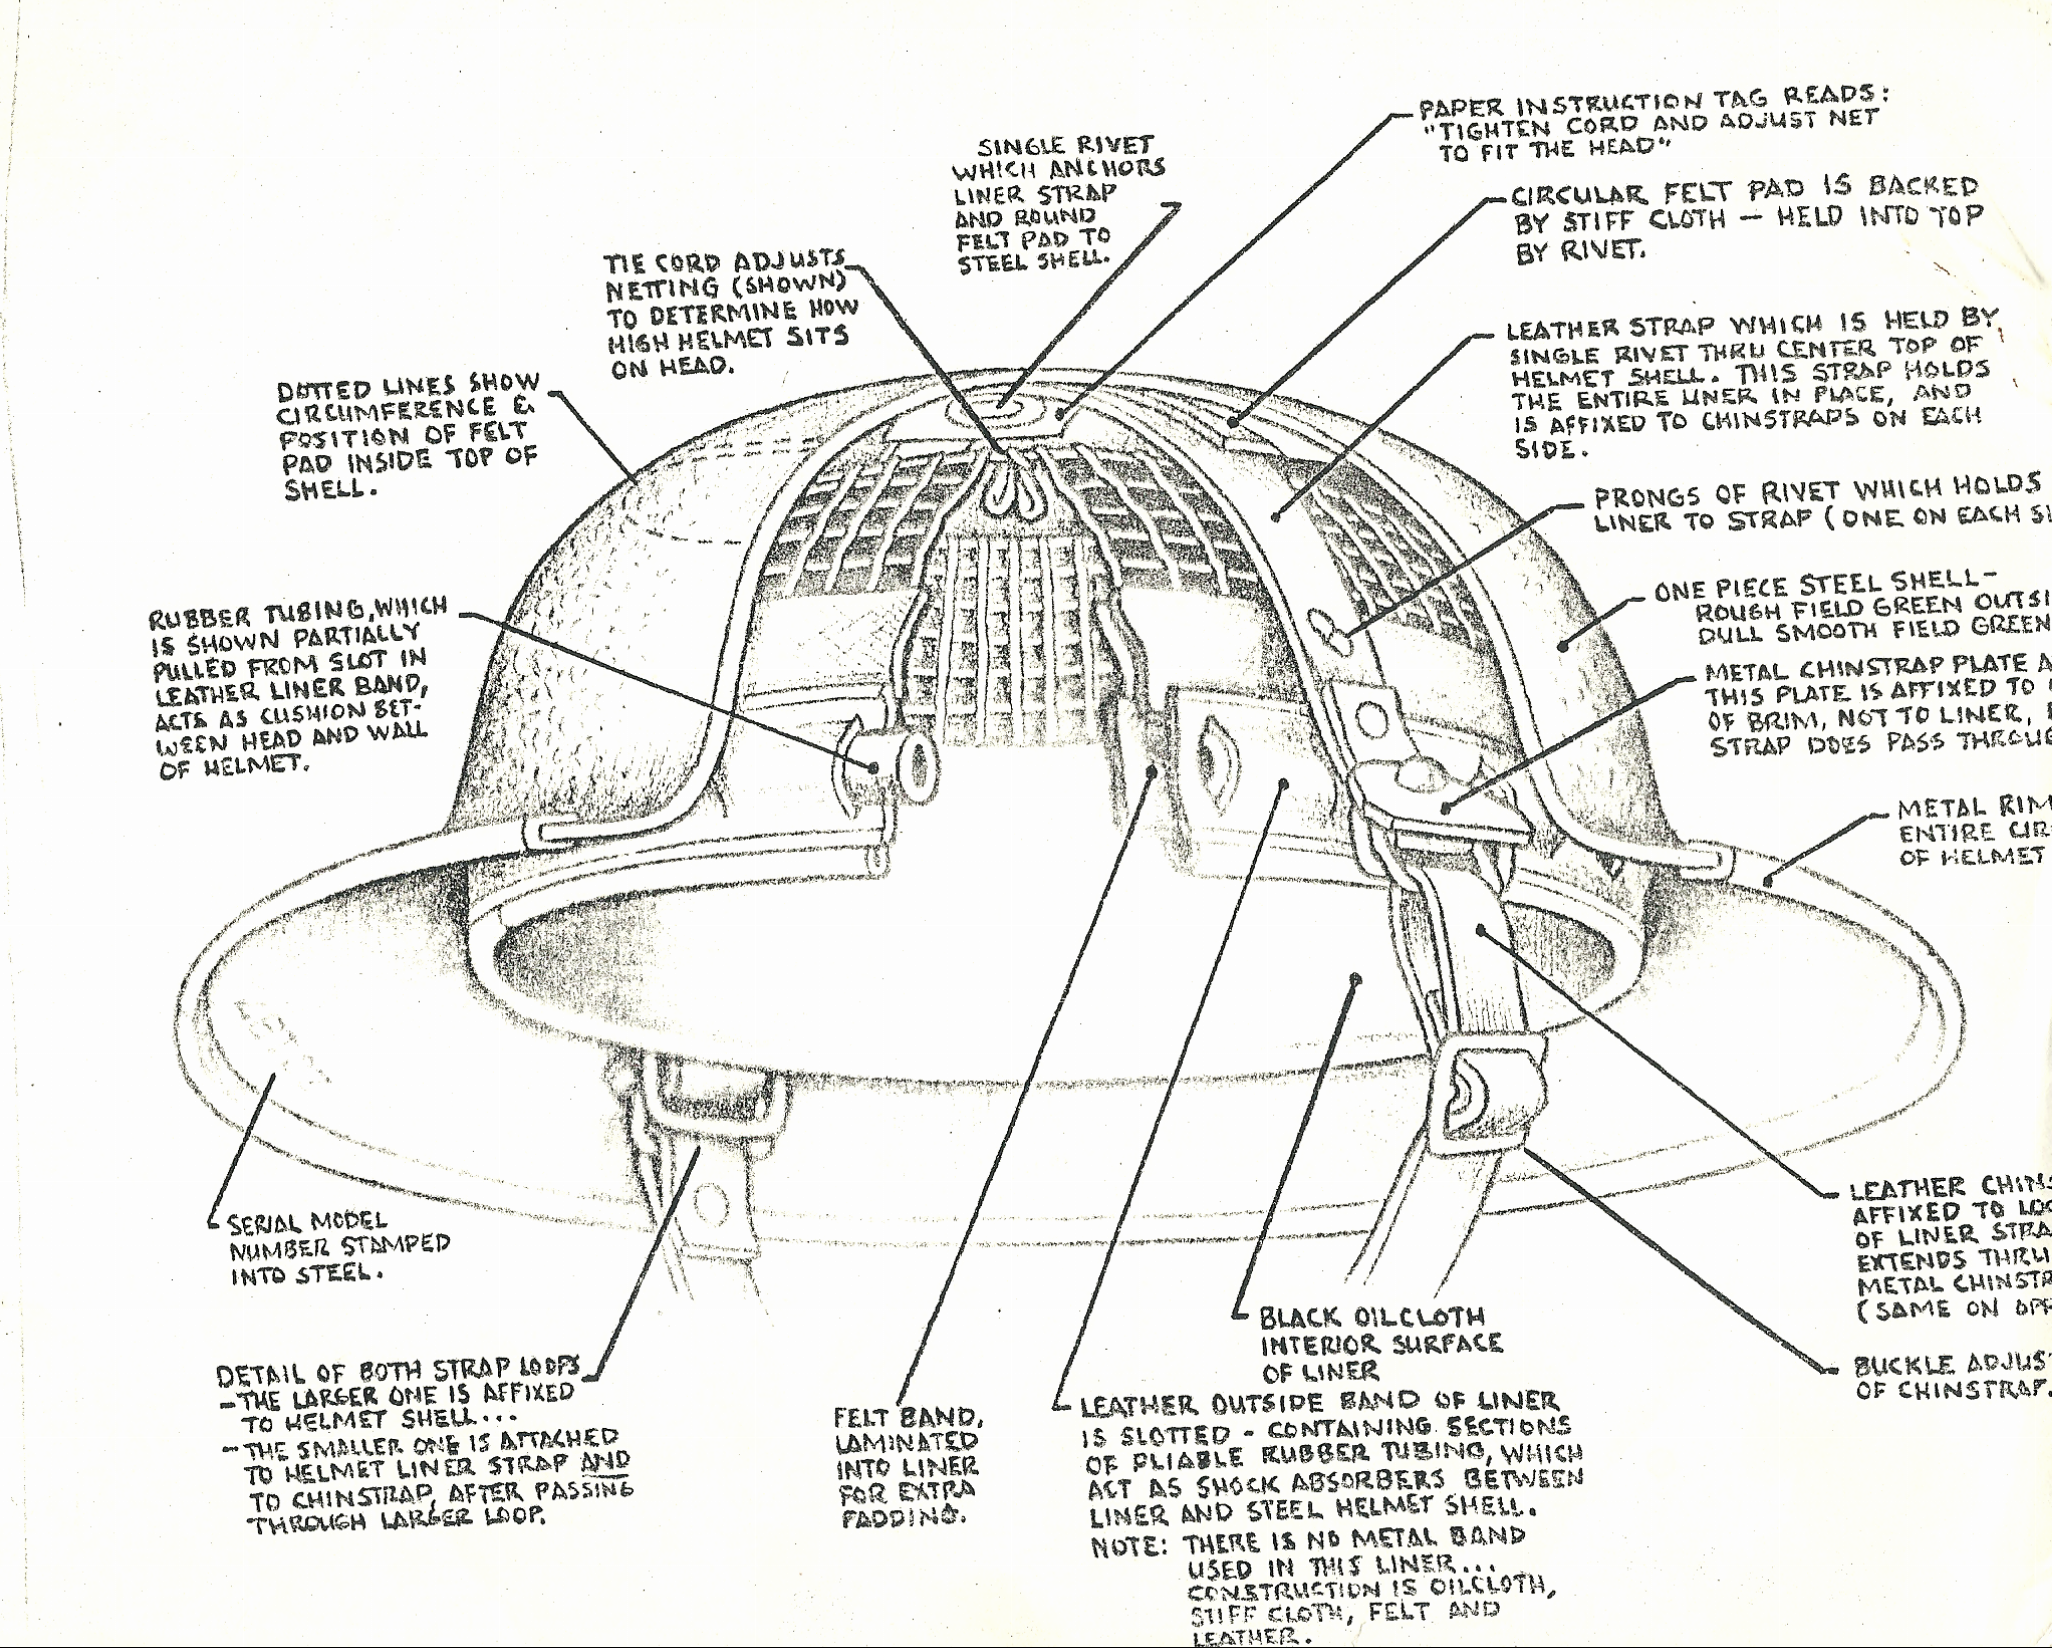 PAPER INSTRUCTION TAG READS:
"TIGHTEN CORD AND ADJUST NET
TO FIT THE HEAD"
SINGLE RIVET
WHICH ANCHORS
LINER STRAP
AND ROUND
FELT PAD TO
STEEL SHELL.
CIRCULAR FELT PAD IS BACKED
BY STIFF CLOTH — HELD INTO TOP
BY RIVET.
TIE CORD ADJUSTS
NETTING (SHOWN)
TO DETERMINE HOW
HIGH HELMET SITS
ON HEAD.
LEATHER STRAP WHICH IS HELD BY
SINGLE RIVET THRU CENTER TOP OF
HELMET SHELL. THIS STRAP HOLDS
THE ENTIRE LINER IN PLACE, AND
IS AFFIXED TO CHINSTRAPS ON EACH
SIDE.
DOTTED LINES SHOW
CIRCUMFERENCE &
POSITION OF FELT
PAD INSIDE TOP OF
SHELL.
PRONGS OF RIVET WHICH HOLDS
LINER TO STRAP (ONE ON EACH SI
ONE PIECE STEEL SHELL-
ROUGH FIELD GREEN OUTSI
DULL SMOOTH FIELD GREEN
RUBBER TUBING, WHICH
IS SHOWN PARTIALLY
PULLED FROM SLOT IN
LEATHER LINER BAND,
ACTS AS CUSHION BET-
WEEN HEAD AND WALL
OF HELMET.
METAL CHINSTRAP PLATE A
THIS PLATE IS AFFIXED TO
OF BRIM, NOT TO LINER,
STRAP DOES PASS THROUG
METAL RIM
ENTIRE CIR
OF HELMET
LEATHER CHINS
AFFIXED TO LOO
OF LINER STRA
EXTENDS THRU
METAL CHINSTR
(SAME ON OPP
SERIAL MODEL
NUMBER STAMPED
INTO STEEL.
BLACK OILCLOTH
INTERIOR SURFACE
OF LINER
BUCKLE ADJUS
OF CHINSTRAP.
DETAIL OF BOTH STRAP LOOPS
-THE LARGER ONE IS AFFIXED
TO HELMET SHELL...
-THE SMALLER ONE IS ATTACHED
TO HELMET LINER STRAP AND
TO CHINSTRAP, AFTER PASSING
THROUGH LARGER LOOP.
FELT BAND,
LAMINATED
INTO LINER
FOR EXTRA
PADDING.
LEATHER OUTSIDE BAND OF LINER
IS SLOTTED - CONTAINING SECTIONS
OF PLIABLE RUBBER TUBING, WHICH
ACT AS SHOCK ABSORBERS BETWEEN
LINER AND STEEL HELMET SHELL.
NOTE: THERE IS NO METAL BAND
USED IN THIS LINER...
CONSTRUCTION IS OILCLOTH,
STIFF CLOTH, FELT AND
LEATHER.